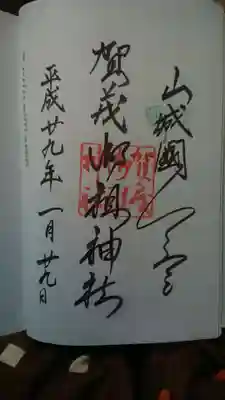 山城國一之宮
賀茂御祖神社
平成廿九年 一月 廿九日